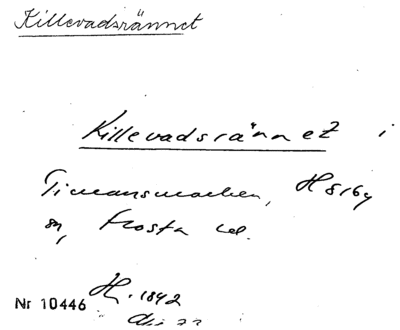 Killevadsrännet
Killevadsrännet i
Timansmarken, Hörby
sn, Frosta hd.
Nr 10446 H. 1842